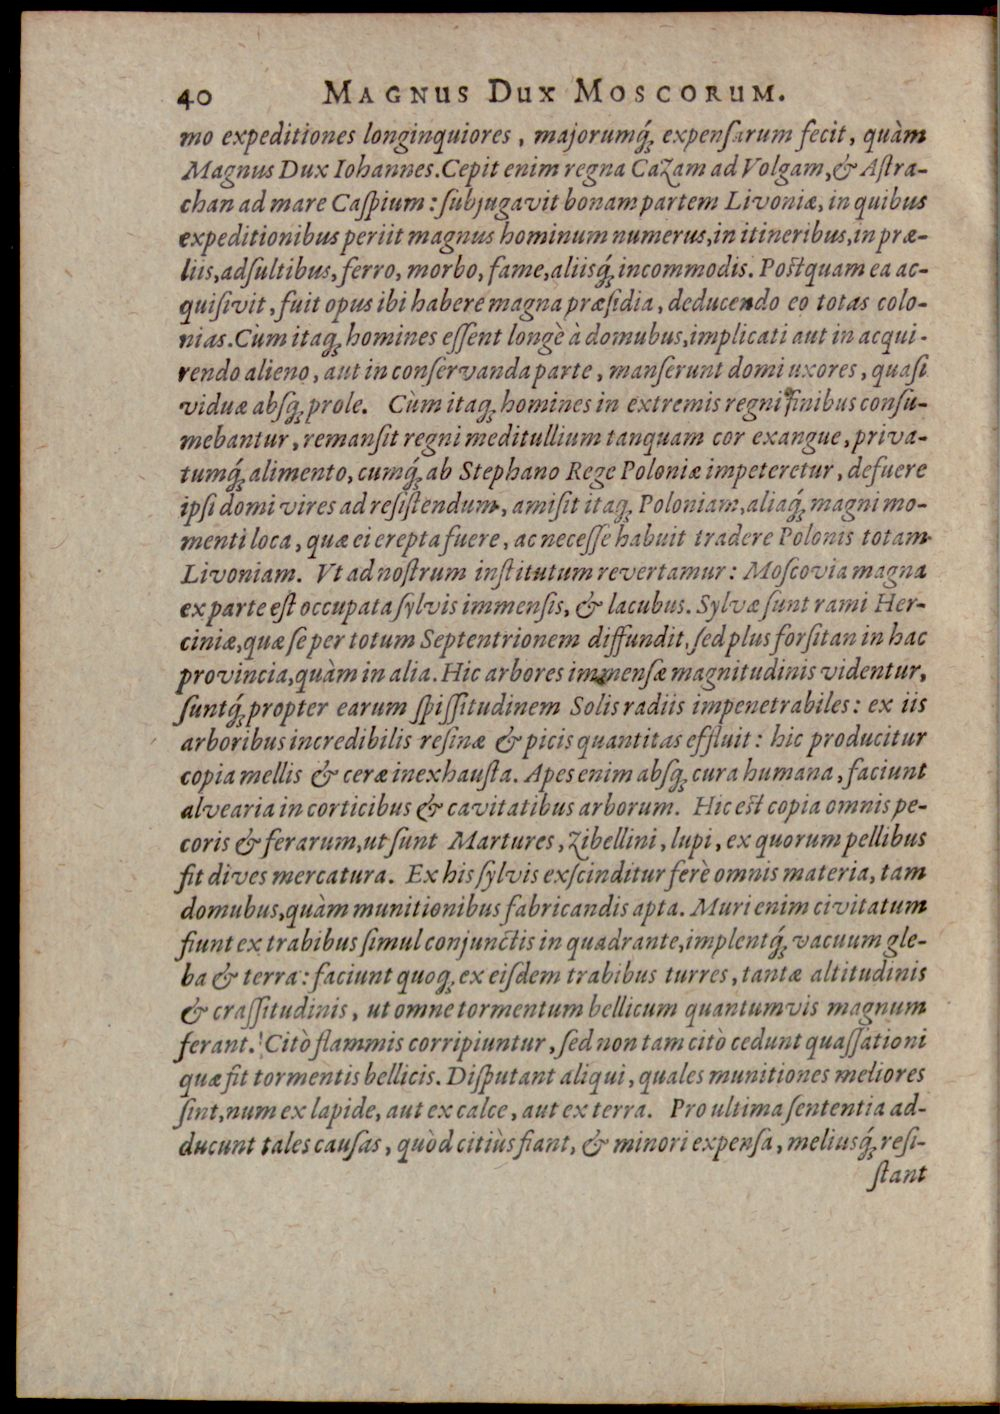 40 MAGNUS DUX MOSCORUM.
mo expeditiones longinquiores, majorumq́; expenſarum fecit, quàm
Magnus Dux Iohannes. Cepit enim regna Cazam ad Volgam, & Aſtra-
chan ad mare Caſpium: ſubjugavit bonam partem Livoniæ, in quibus
expeditionibus periit magnus hominum numerus, in itineribus, in præ-
liis, adſultibus, ferro, morbo, fame, aliisq́; incommodis. Poſtquam ea ac-
quiſivit, fuit opus ibi habere magna præſidia, deducendo eo totas colo-
nias. Cùm itaq; homines eſſent longè à domubus, implicati aut in acqui-
rendo alieno, aut in conſervanda parte, manſerunt domi uxores, quaſi
viduæ abſq; prole. Cùm itaq; homines in extremis regni finibus conſu-
mebantur, remanſit regni meditullium tanquam cor exangue, priva-
tumq́; alimento, cumq́; ab Stephano Rege Poloniæ impeteretur, defuere
ipſi domi vires ad reſiſtendum, amiſit itaq; Poloniam, aliaq́; magni mo-
menti loca, quæ ei erepta fuere, ac neceſſe habuit tradere Polonis totam
Livoniam. Vt ad noſtrum inſtitutum revertamur: Moſcovia magna
ex parte eſt occupata ſylvis immenſis, & lacubus. Sylvæ ſunt rami Her-
ciniæ, quæ ſe per totum Septentrionem diffundit, ſed plus forſitan in hac
provincia, quàm in alia. Hic arbores immenſæ magnitudinis videntur,
ſuntq́; propter earum ſpiſſitudinem Solis radiis impenetrabiles: ex iis
arboribus incredibilis reſinæ & picis quantitas effluit: hic producitur
copia mellis & ceræ inexhauſta. Apes enim abſq; cura humana, faciunt
alvearia in corticibus & cavitatibus arborum. Hic eſt copia omnis pe-
coris & ferarum, ut ſunt Martures, Zibellini, lupi, ex quorum pellibus
fit dives mercatura. Ex his ſylvis exſcinditur ferè omnis materia, tam
domubus, quàm munitionibus fabricandis apta. Muri enim civitatum
fiunt ex trabibus ſimul conjunctis in quadrante, implentq́; vacuum gle-
ba & terra: faciunt quoq; ex eiſdem trabibus turres, tantæ altitudinis
& craſſitudinis, ut omne tormentum bellicum quantumvis magnum
ferant. Citò flammis corripiuntur, ſed non tam citò cedunt quaſſationi
quæ fit tormentis bellicis. Diſputant aliqui, quales munitiones meliores
ſint, num ex lapide, aut ex calce, aut ex terra. Pro ultima ſententia ad-
ducunt tales cauſas, quòd citiùs fiant, & minori expenſa, meliusq́; reſi-
ſtant